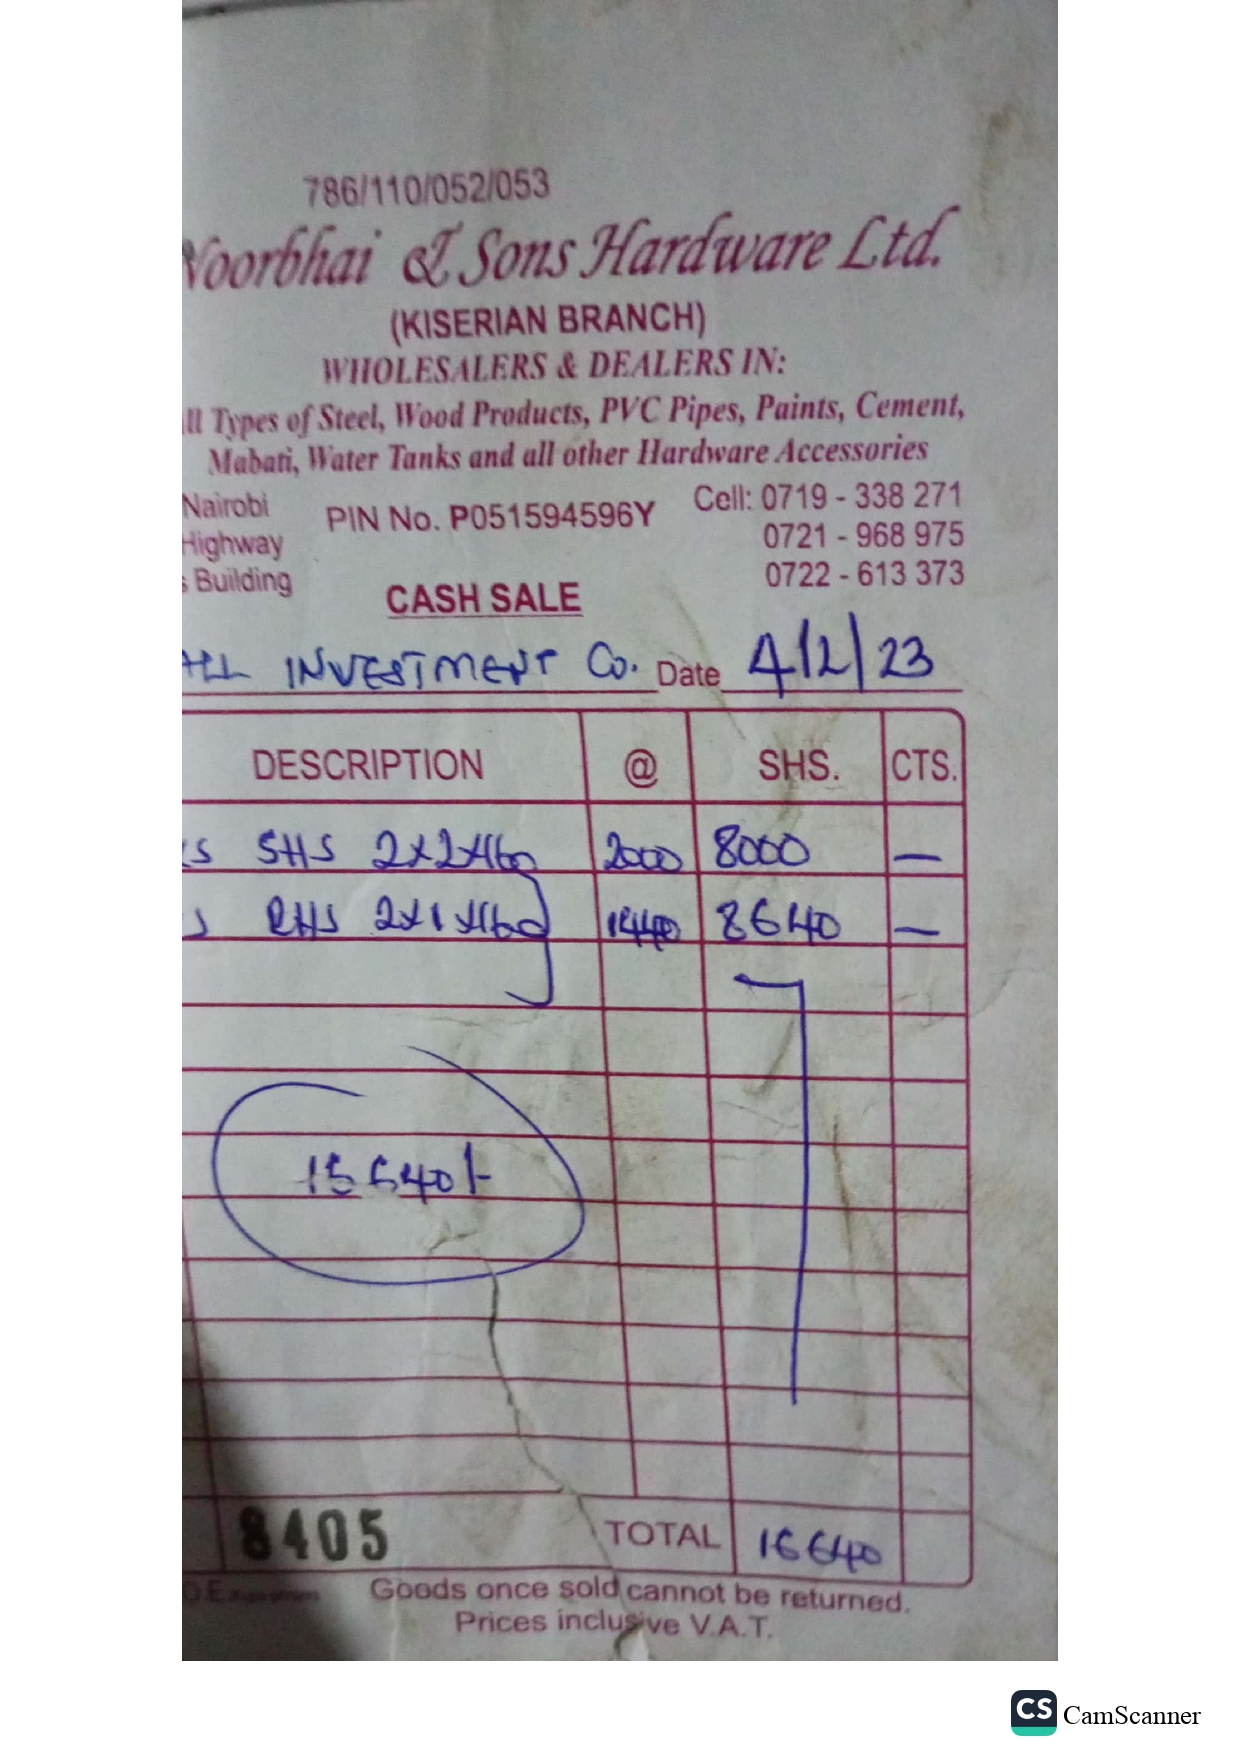 786/110/052/053
Noorbhai & Sons Hardware Ltd.
(KISERIAN BRANCH)
WHOLESALERS & DEALERS IN:
ll Types of Steel, Wood Products, PVC Pipes, Paints, Cement,
Mabati, Water Tanks and all other Hardware Accessories
Nairobi PIN No. P051594596Y Cell: 0719 - 338 271
Highway 0721 - 968 975
s Building 0722 - 613 373
CASH SALE
ALL INVESTMENT Co. Date 4/2/23
DESCRIPTION @ SHS. CTS.
cs SHS 2x2x16g 2000 8000 —
s RHS 2x1x16g 1440 8640 —
16640/-
8405 TOTAL 16640
O.E. Goods once sold cannot be returned.
Prices inclusive V.A.T.
CS CamScanner